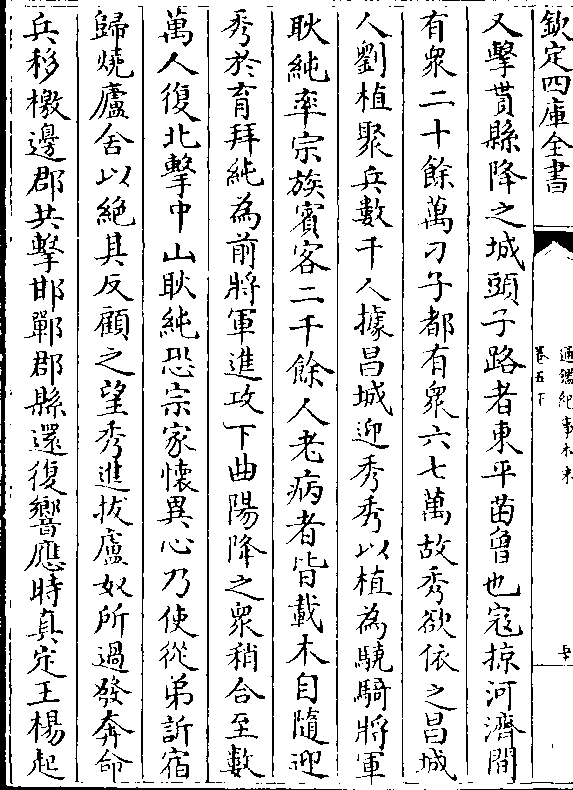 欽定四庫全書
通鑑紀事本末
卷五下
又擊貰縣降之城頭子路者東平茜曾也寇掠河濟間
有衆二十餘萬刁子都有衆六七萬故秀欲依之昌城
人劉植聚兵數千人據昌城迎秀秀以植為驍騎將軍
耿純率宗族賓客二千餘人老病者皆載木自隨迎
秀於育拜純為前將軍進攻下曲陽降之衆稍合至數
萬人復北擊中山耿純恐宗家懷異心乃使從弟訢宿
歸燒廬舍以絶其反顧之望秀進拔盧奴所過發奔命
兵移檄邊郡共擊邯鄲郡縣還復響應時真定王楊起